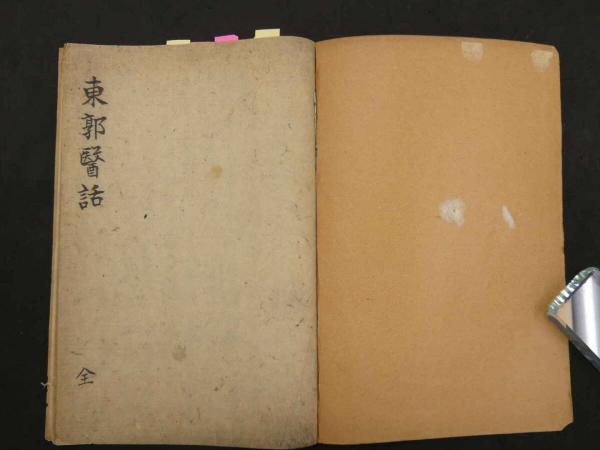 東郭醫話
全